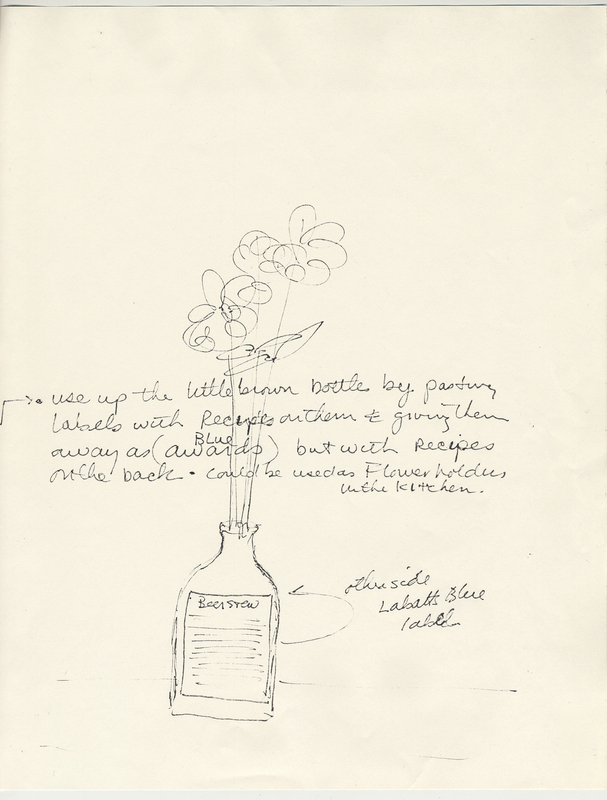 use up the little brown bottles by pasting
labels with Recipes on them & giving them
away as (awards) but with Recipes
BLUE
on the back. could be used as Flower holders
in the kitchen.
Beer Stew
other side
Labatts Blue
label